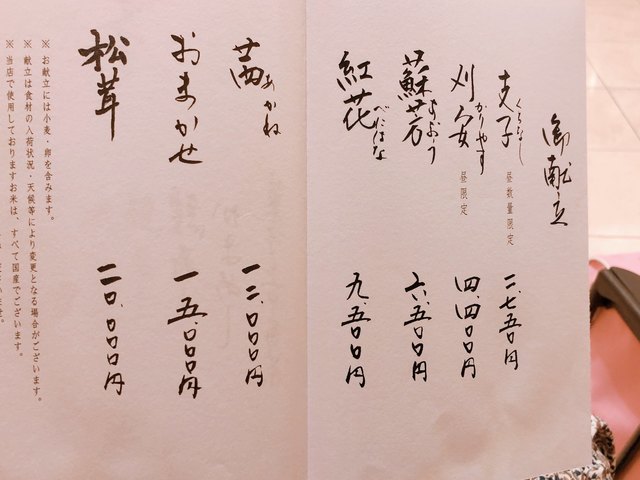 御献立
支子 くちなし 昼数量限定 二、七五〇円
刈安 かりやす 昼限定 四、四〇〇円
蘇芳 すおう 六、五〇〇円
紅花 べにばな 九、五〇〇円
茜 あかね 一二、〇〇〇円
おまかせ 一五、〇〇〇円
松茸 二〇、〇〇〇円
※お献立には小麦・卵を含みます。
※献立は食材の入荷状況・天候等により変更となる場合がございます。
※当店で使用しておりますお米は、すべて国産でございます。